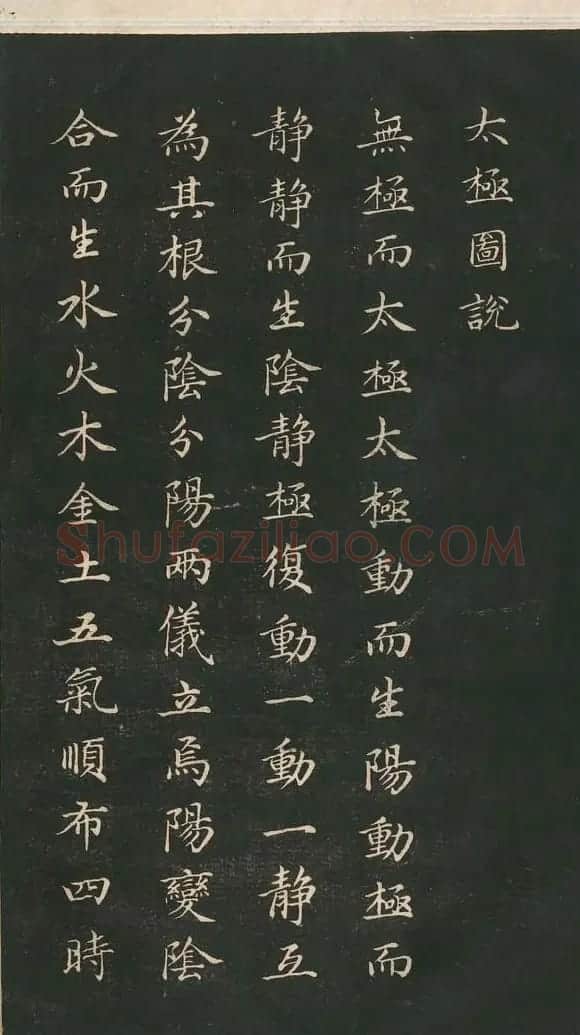 太極圖說
無極而太極太極動而生陽動極而
静静而生陰静極復動一動一静互
為其根分陰分陽兩儀立焉陽變陰
合而生水火木金土五氣順布四時
Shufaziliao.COM